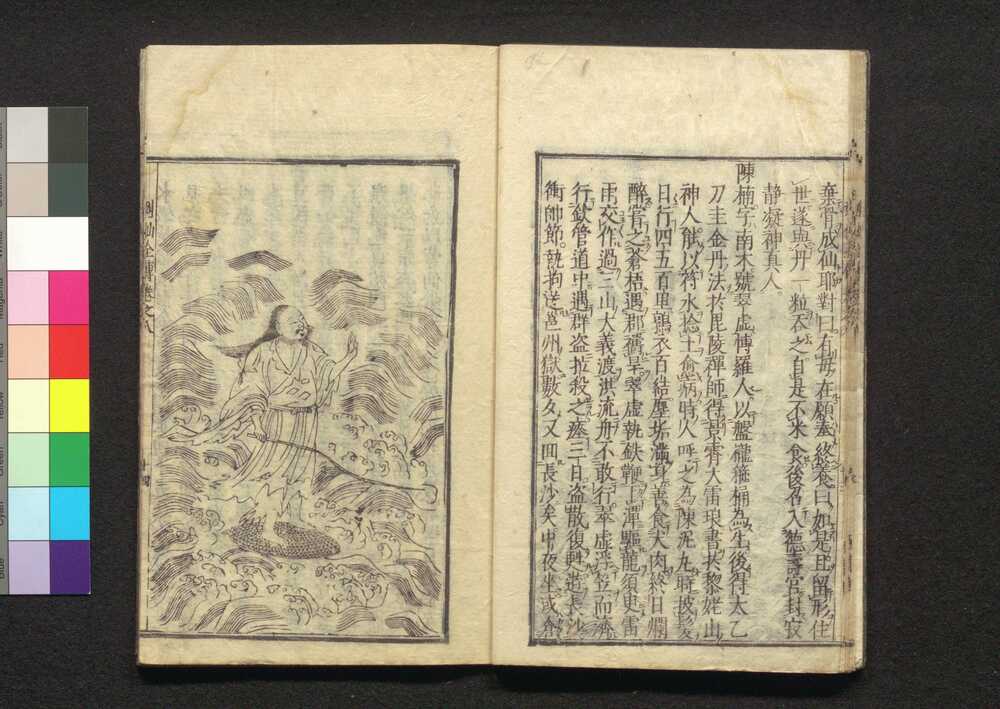 棄骨成仙耶對曰有母在願奉終養曰如是且留形住
世遂與丹一粒吞之自是不米食後召入德壽宮封寂
靜凝神真人
陳楠字南木號翠虛博羅人以盤櫳箍桶為生後得太乙
刀圭金丹法於毘陵禪師得景霄大雷琅書於黎姥山
神人能以符水捻土愈病時人呼之為陳泥丸時披髮
日行四五百里鶉衣百結塵垢滿身善食犬肉終日爛
醉嘗之蒼梧遇郡禱旱翠虛執鉄鞭下潭驅龍須臾雷
雨交作過三山大義渡洪流舟不敢行翠虛浮笠而濟
行欽管道中遇群盗拉殺之瘞三日盗散復甦遊長沙
衝帥節執拘送邕州獄數夕又回長沙矣中夜坐或剑
列仙全傳卷之八